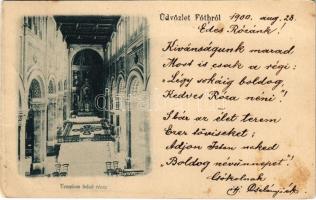 Üdvözlet Fóthról
1900. aug. 28.
Édes Rózánk!
Kívánságunk marad
Most is csak a régi:
"Légy sokáig boldog,
Kedves Róza néni"!
S bár az élet terem
Ezer töviseket;
Adjon Isten neked
"Boldog névünnepet".
Csókolnak
Templom belső része